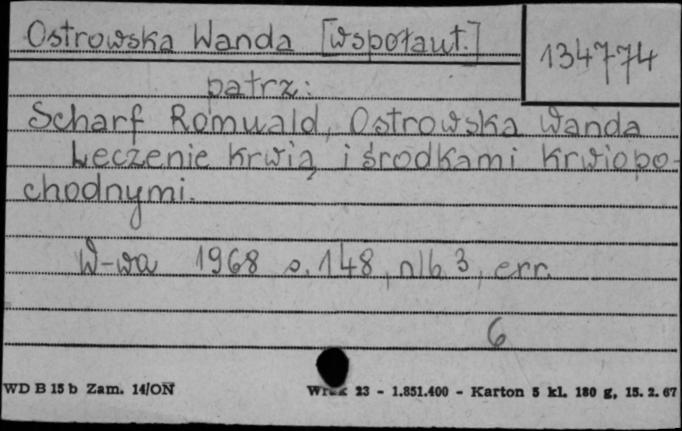 Ostrowska Wanda [współaut.]
134774
patrz:
Scharf Romuald, Ostrowska Wanda
Leczenie krwią i środkami krwiopo-
chodnymi.
W-wa 1968 s. 148, nlb 3, err.
6
WD B 15 b Zam. 14/ON
23 - 1.851.400 - Karton 5 kl. 180 g, 15. 2. 67